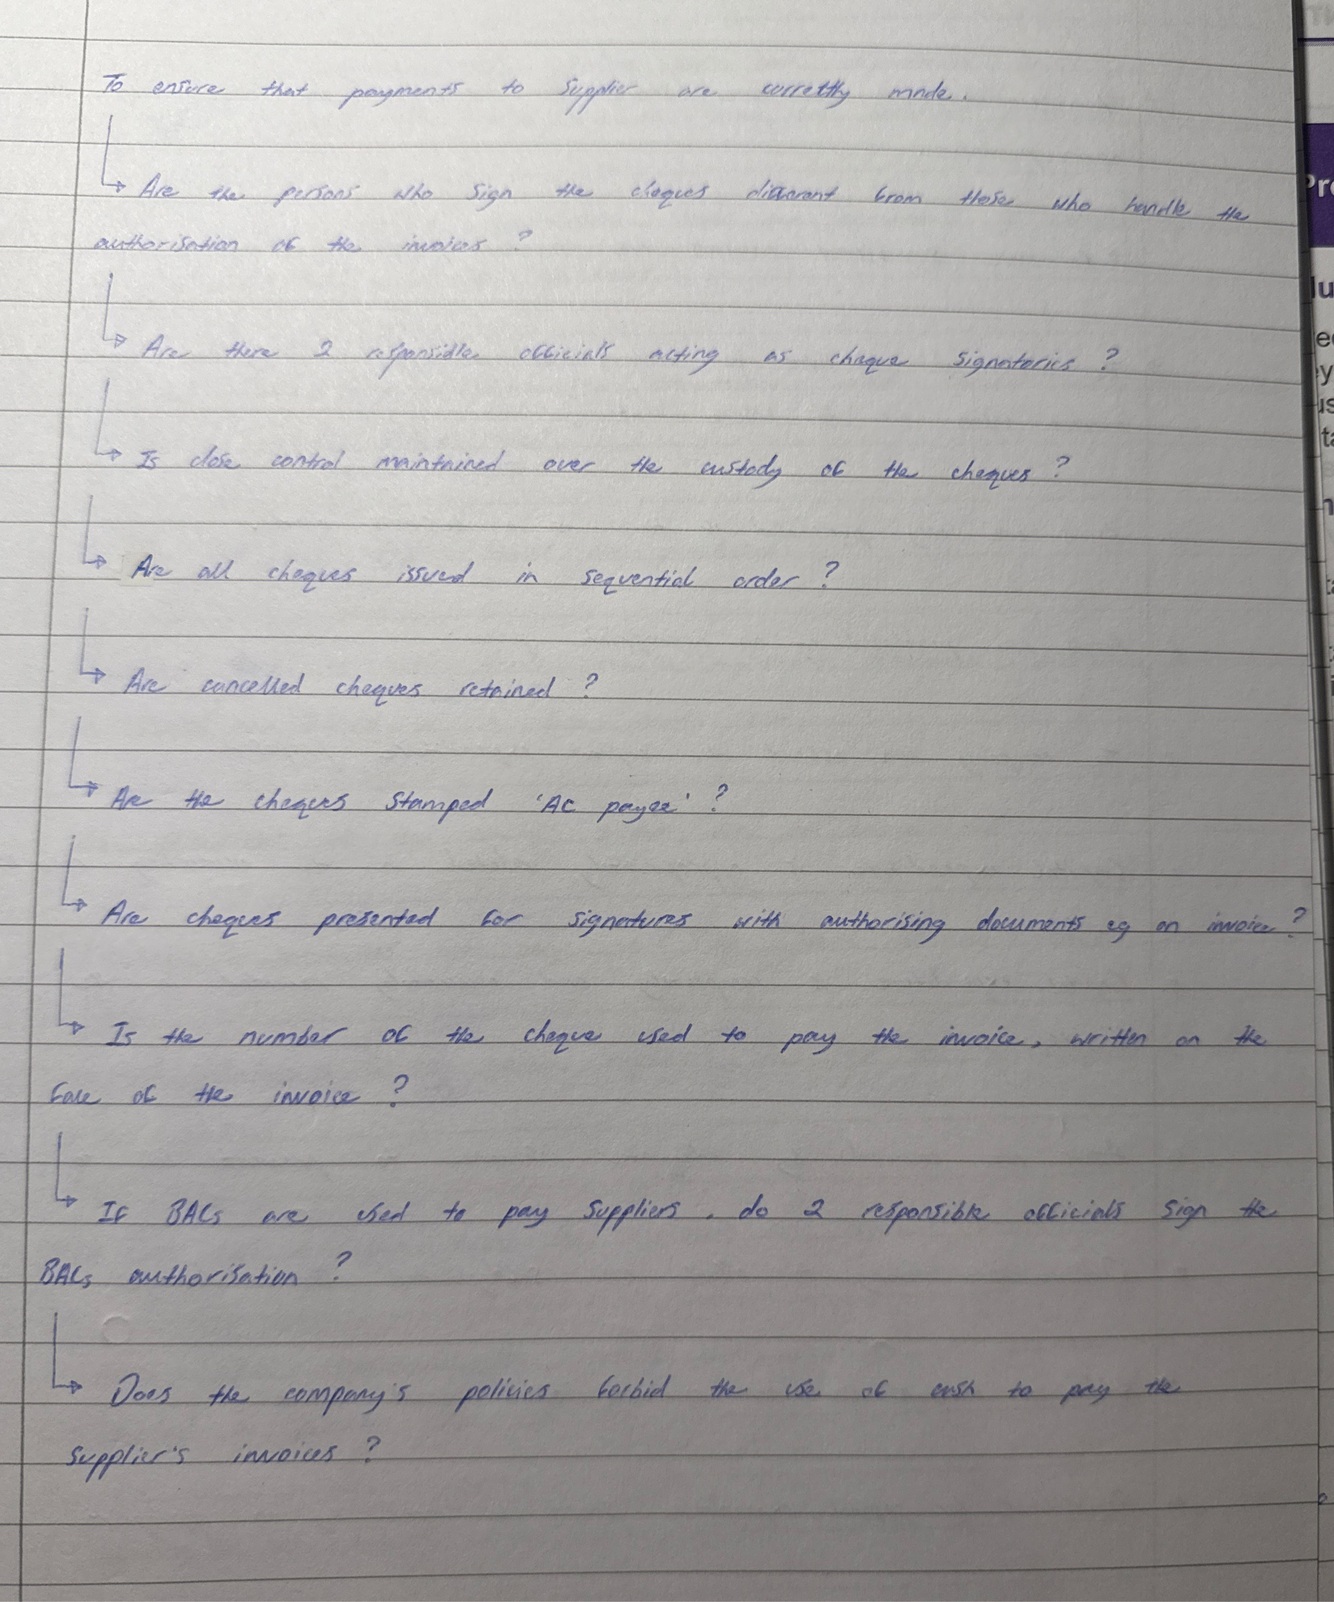 To ensure that payments to supplier are correctly made.
↳ Are the persons who sign the cheques different from those who handle the
authorisation of the invoices ?
↳ Are there 2 responsible officials acting as cheque signatories ?
↳ Is close control maintained over the custody of the cheques ?
↳ Are all cheques issued in sequential order ?
↳ Are cancelled cheques retained ?
↳ Are the cheques stamped 'AC payee' ?
↳ Are cheques presented for signatures with authorising documents eg an invoice ?
↳ Is the number of the cheque used to pay the invoice, written on the
face of the invoice ?
↳ If BACs are used to pay suppliers, do 2 responsible officials sign the
BACs authorisation ?
↳ Does the company's policies forbid the use of cash to pay the
supplier's invoices ?